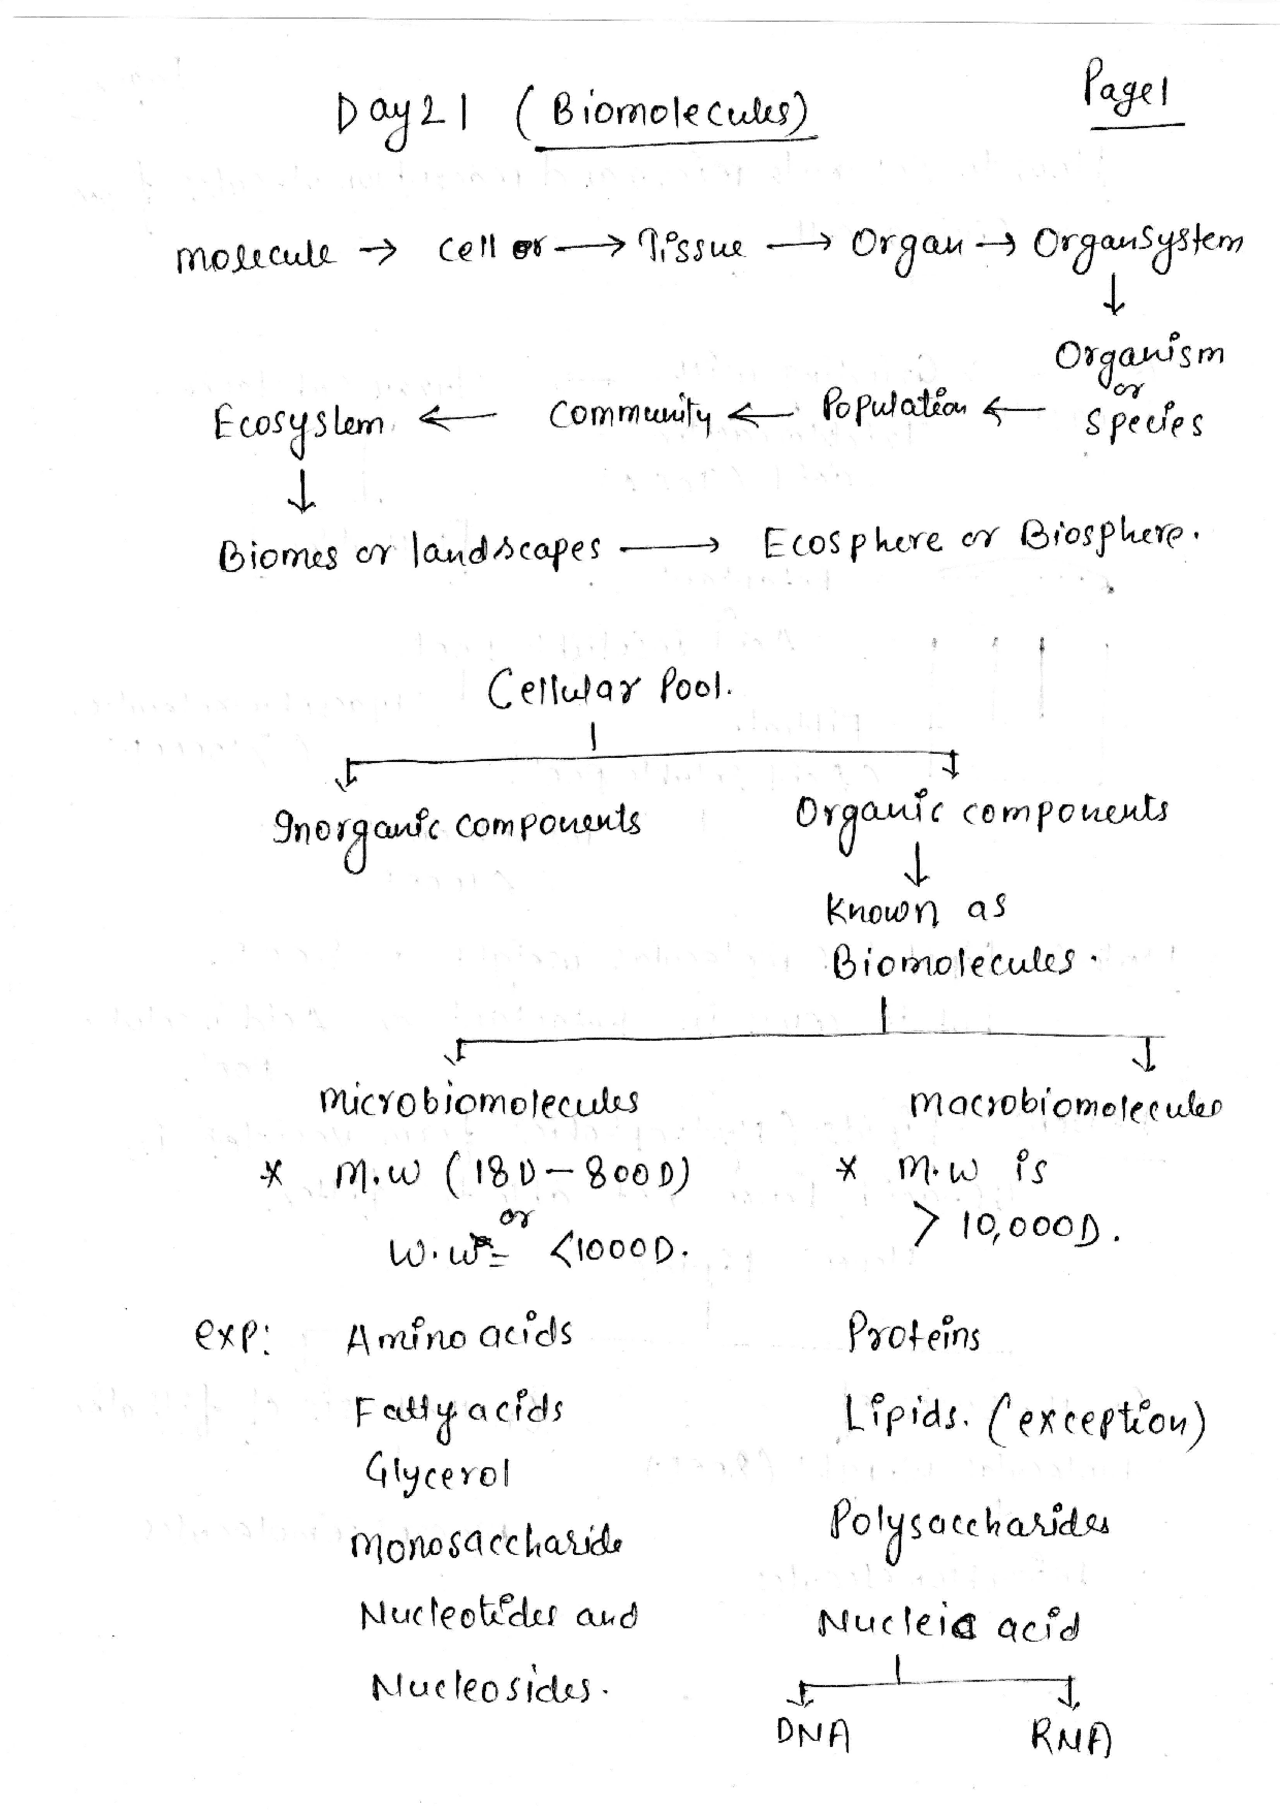 Day 21 (Biomolecules)
Page 1
Molecule → Cell or → Tissue → Organ → Organsystem
↓
Organism
or
Ecosystem ← Community ← Population ← Species
↓
Biomes or landscapes → Ecosphere or Biosphere.
Cellular Pool.
Inorganic components Organic components
↓
Known as
Biomolecules.
Microbiomolecules Macrobiomolecules
* M.W (18D - 800D) * M.W is
or
W.W = <1000D. > 10,000D.
exp: Amino acids Proteins
Fatty acids Lipids. (exception)
Glycerol
Monosaccharide Polysaccharides
Nucleotides and Nucleic acid
Nucleosides.
DNA RNA